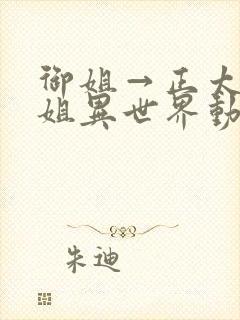 御姐→正太
姐異世界動
朱迪